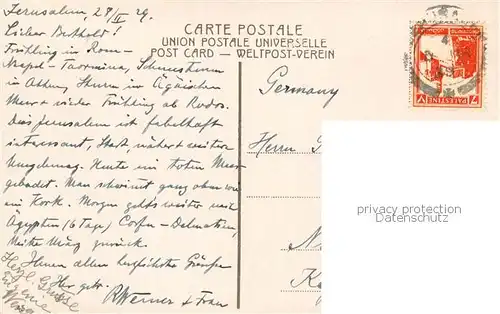 Jerusalem, 28/II 29.
CARTE POSTALE
UNION POSTALE UNIVERSELLE
POST CARD — WELTPOST-VEREIN
Lieber Berthold!
Frühling in Rom –
Neapel – Taormina, Schneesturm
in Athen, Sturm im Ägäischen
Meer & wieder Frühling ab Rodos.
Das Jerusalem ist fabelhaft
interessant, Stadt, nähere & weitere
Umgebung. Heute im toten Meer
gebadet. Man schwimmt ganz oben wie
ein Kork. Morgen geht's weiter nach
Ägypten (6 Tage) Corfu – Dalmatien,
Mitte März zurück.
Ihnen allen herzlichste Grüße
Ihr getr.
R Werner & Frau
Herzl. Grüsse
Germany
Herrn
PALESTINE
7
privacy protection
watermark